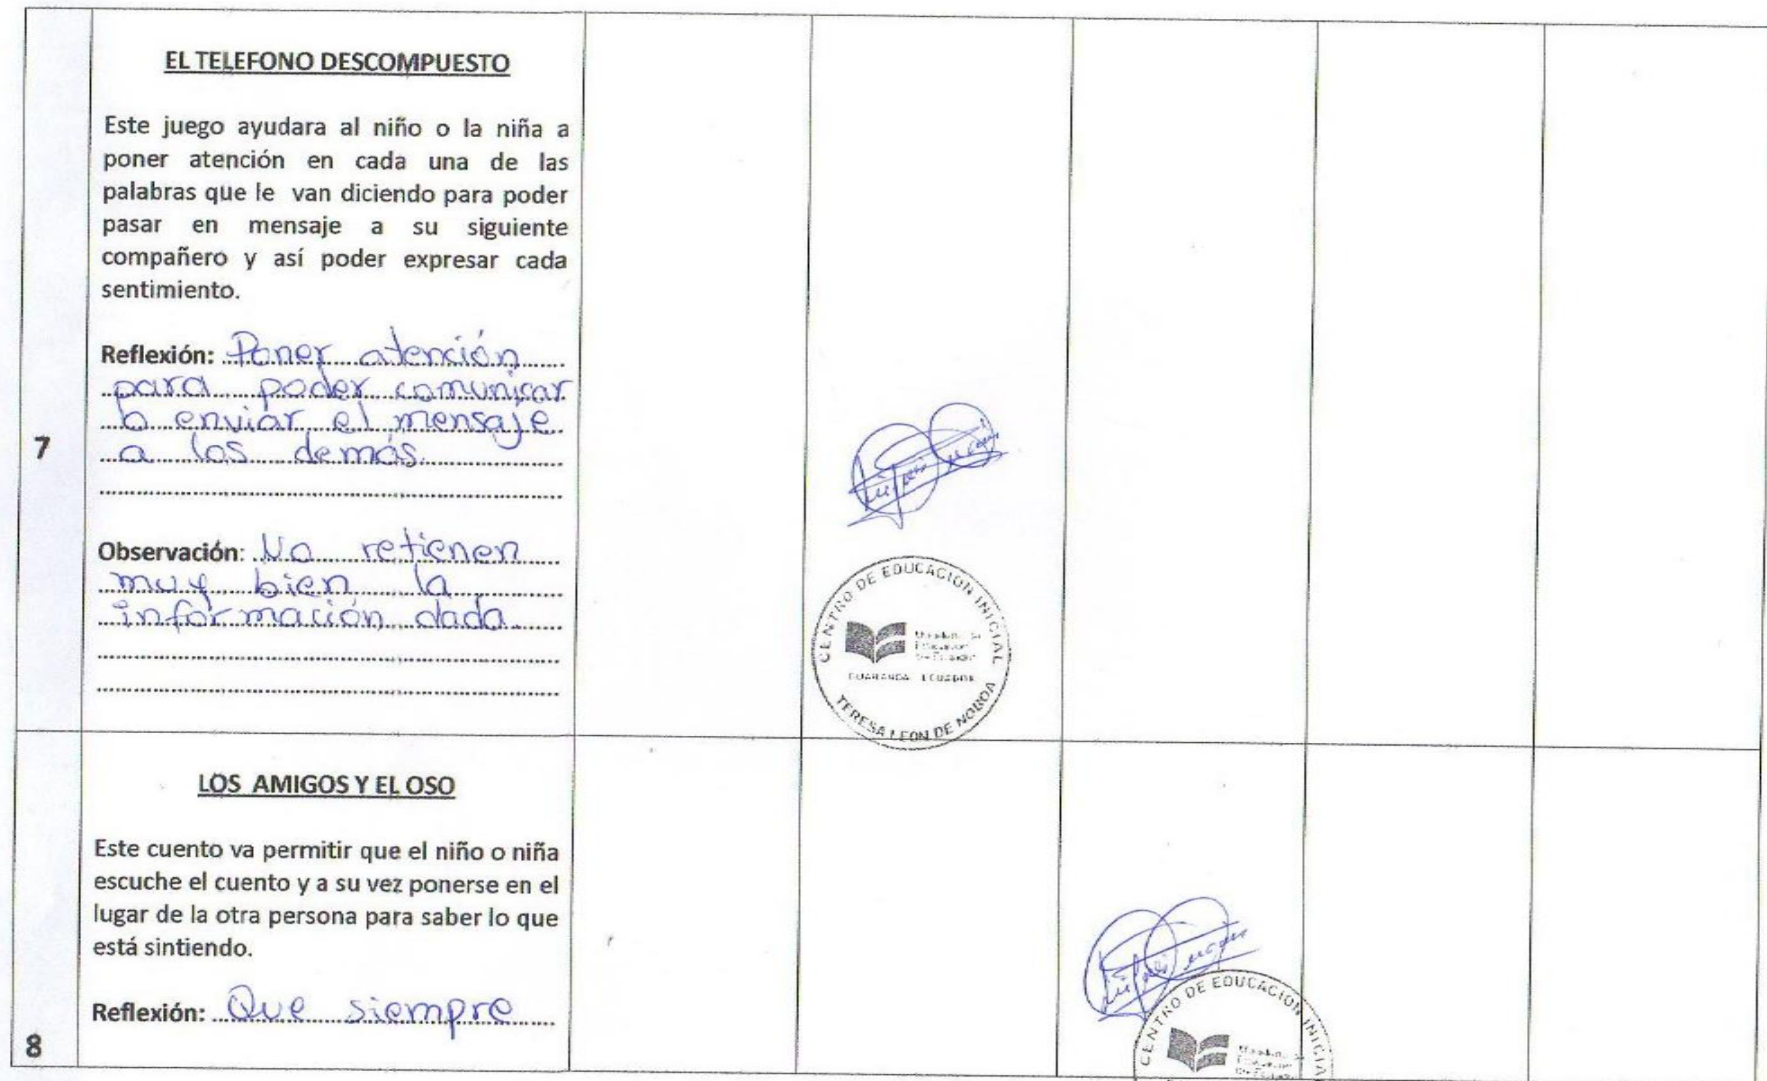 EL TELEFONO DESCOMPUESTO
Este juego ayudara al niño o la niña a
poner atención en cada una de las
palabras que le van diciendo para poder
pasar en mensaje a su siguiente
compañero y así poder expresar cada
sentimiento.
Reflexión: Poner atención
para poder comunicar
o enviar el mensaje
a los demás.
7
Observación: No retienen
muy bien la
información dada.
CENTRO DE EDUCACION INICIAL
Ministerio de
Educación
GUARANDA ECUADOR
TERESA LEON DE NOBOA
LOS AMIGOS Y EL OSO
Este cuento va permitir que el niño o niña
escuche el cuento y a su vez ponerse en el
lugar de la otra persona para saber lo que
está sintiendo.
Reflexión: Que siempre
8
CENTRO DE EDUCACION INICIA